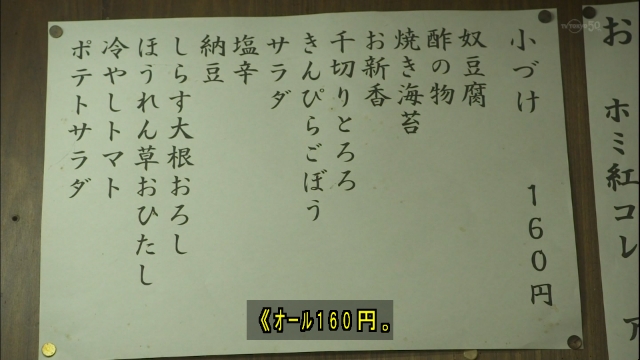 小づけ 160円
奴豆腐
酢の物
焼き海苔
お新香
千切りとろろ
きんぴらごぼう
サラダ
塩辛
納豆
しらす大根おろし
ほうれん草おひたし
冷やしトマト
ポテトサラダ
お
ホミ紅コレ
《ｵｰﾙ160円。